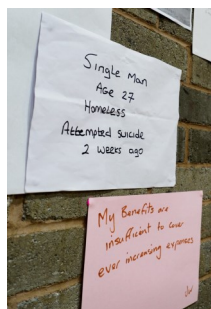 Single Man
Age 27
Homeless
Attempted suicide
2 weeks ago
My Benefits are
insufficient to cover
ever increasing expenses